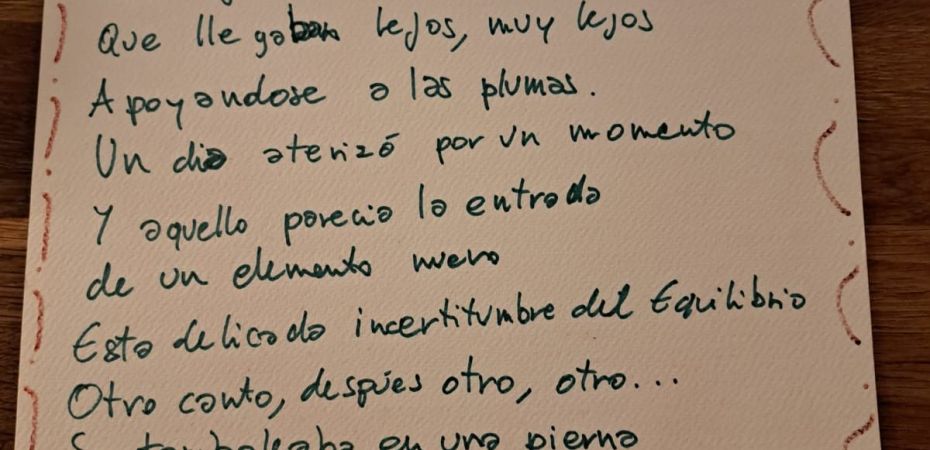 Que llegaban lejos, muy lejos
Apoyandose a las plumas.
Un dia aterizó por un momento
Y aquello parecia la entrada
de un elemento nuevo
Esta delicada incertitumbre del Equilibrio
Otro canto, despúes otro, otro...
en una pierna